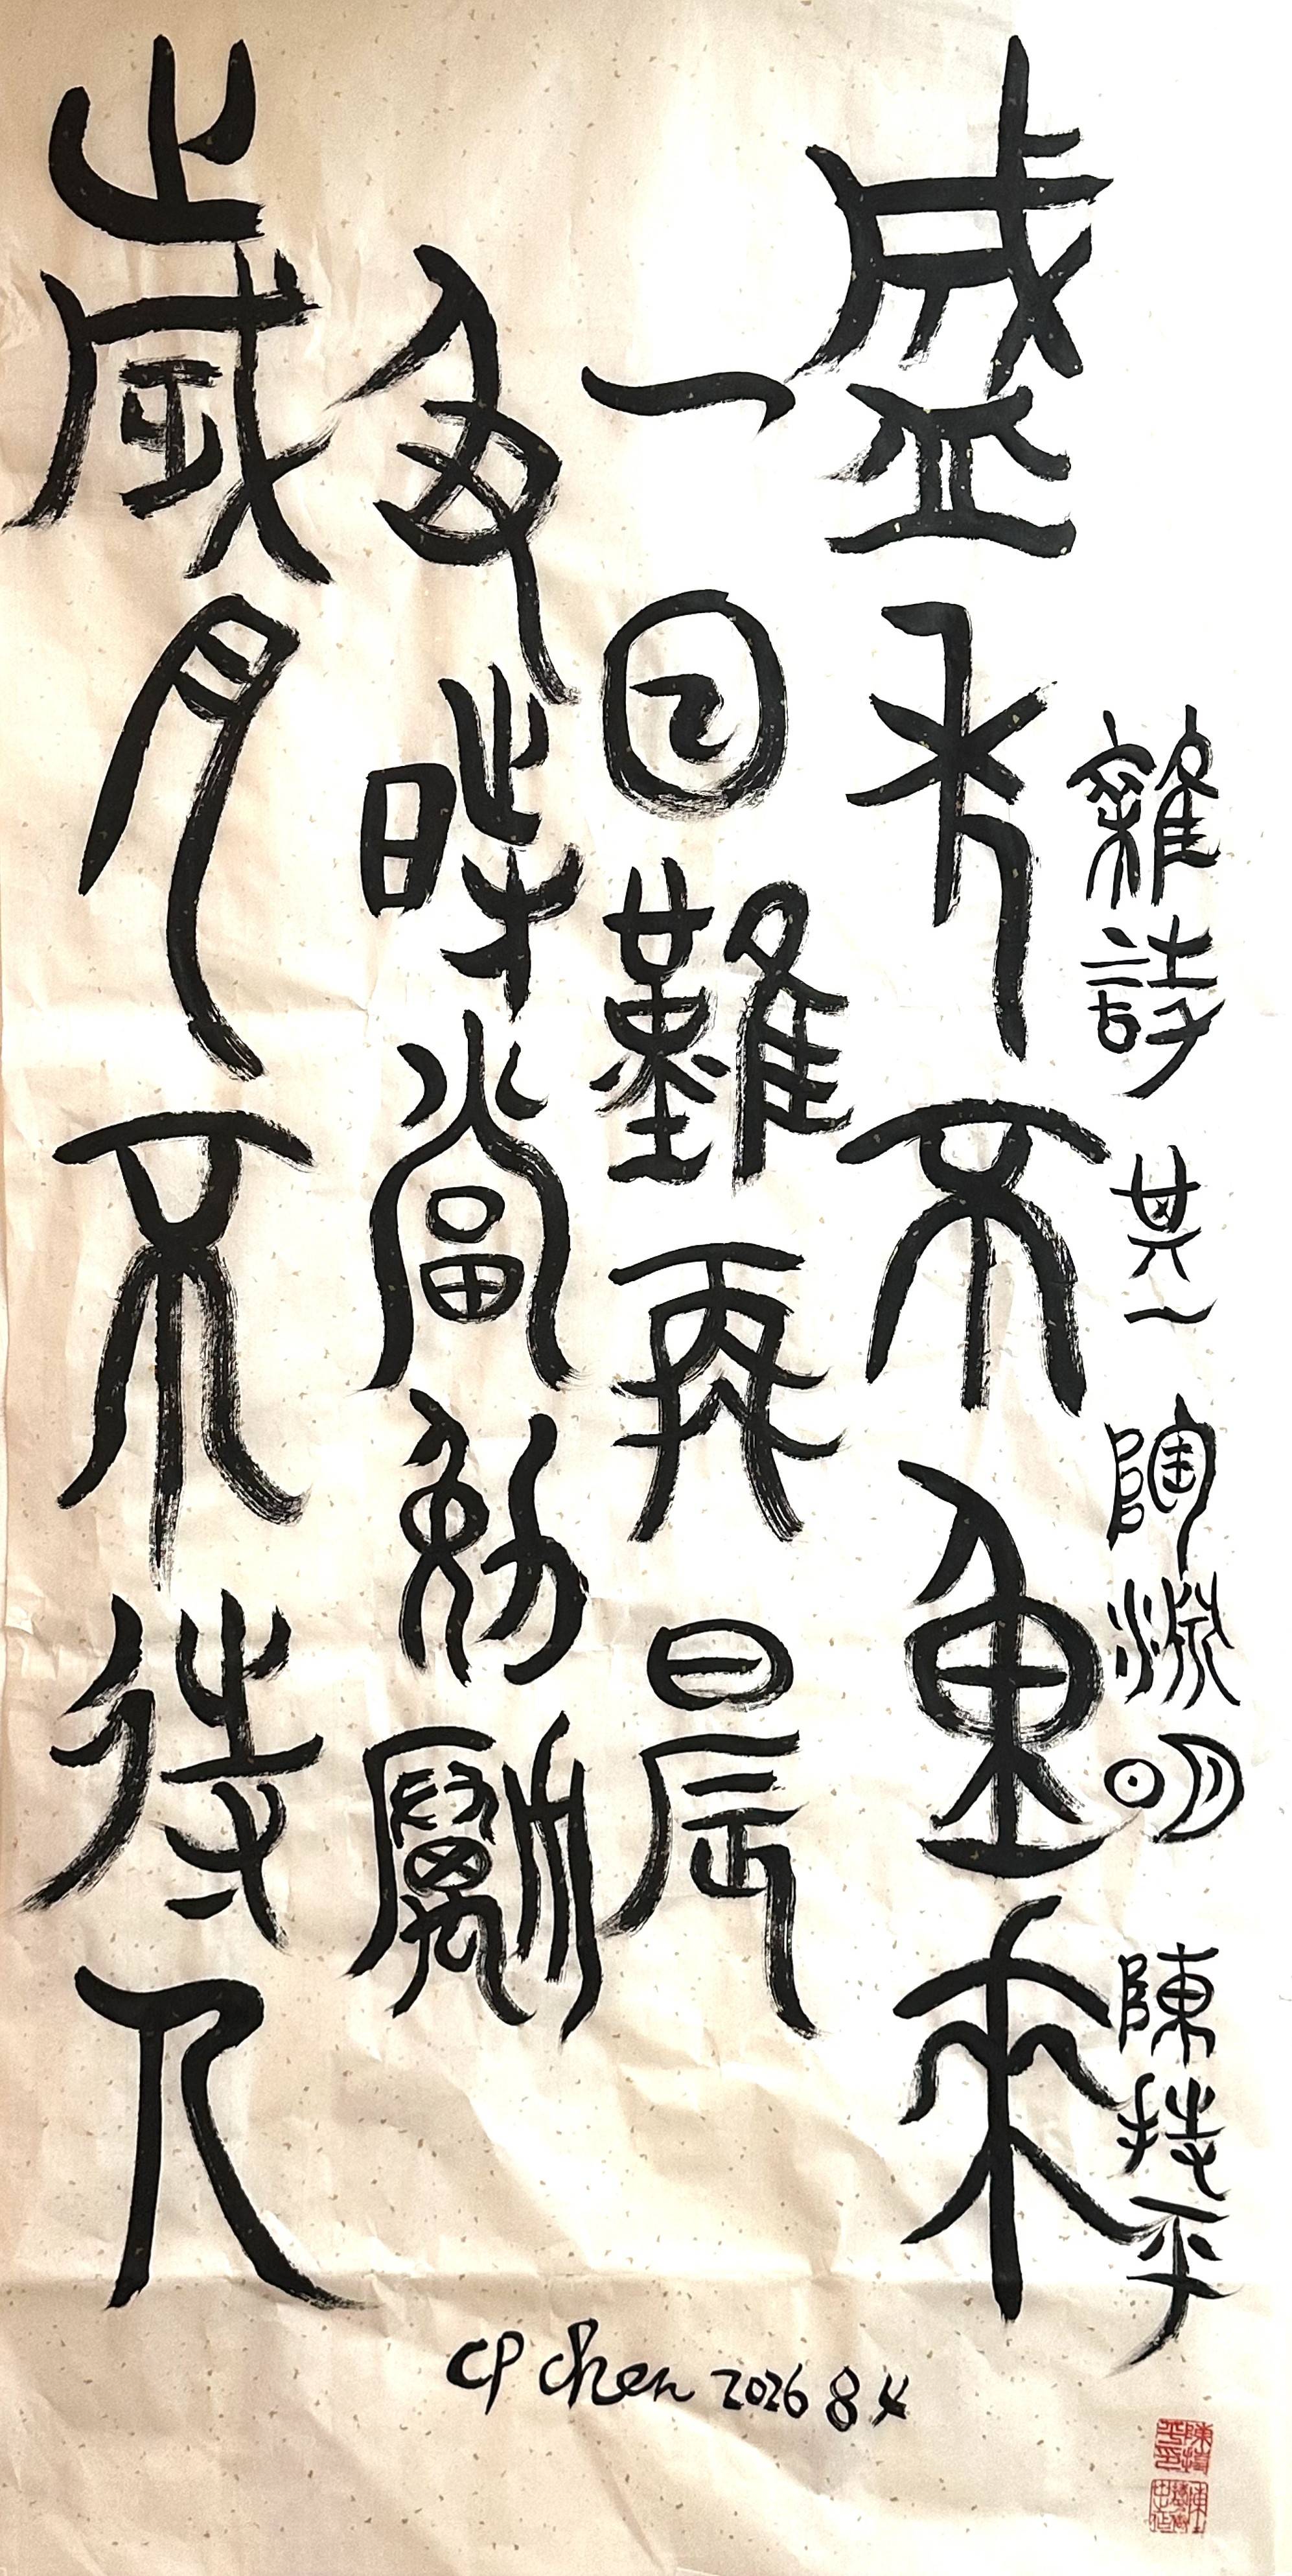 雜詩 其一 陶淵明 陳持平
盛年不重來
一日難再晨
及時當勉勵
歲月不待人
CP Chen 2026 8 4
陳持平印